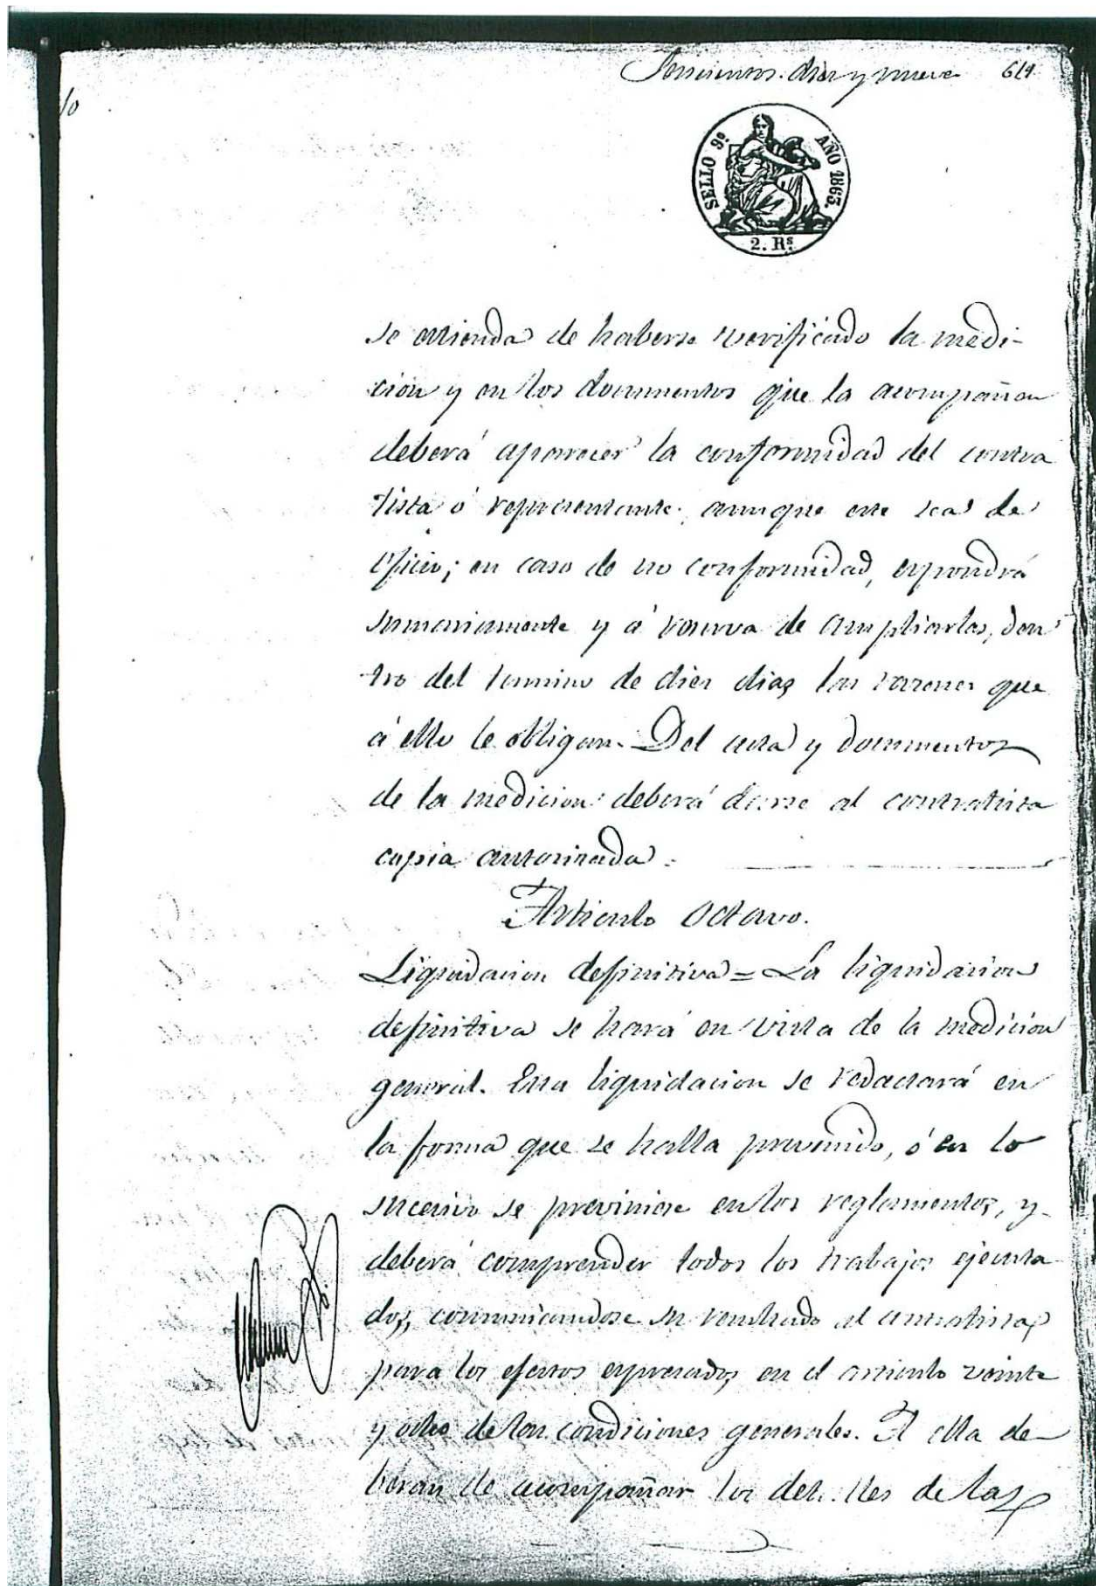 Seiscientos diez y nueve 619
SELLO 9º AÑO 1863.
2. Rˢ
se estienda de haberse verificado la medi-
cion y en los documentos que la acompañan
deberá aparecer la conformidad del contra
tista ó representante, aunque este sea de
oficio; en caso de no conformidad, espondrá
sumariamente y á reserva de ampliarlas, den
tro del termino de diez dias las razones que
á ello le obligan. Del acta y documentos
de la medicion deberá darse al contratista
copia autorizada.
Artículo Octavo.
Liquidacion definitiva = La liquidacion
definitiva se hará en vista de la medicion
general. Esta liquidacion se redactará en
la forma que se halla prevenido, ó en lo
sucesivo se previniese en los reglamentos, y
deberá comprender todos los trabajos ejecuta
dos, comunicandose su resultado al contratista,
para los efectos espresados en el articulo veinte
y ocho de las condiciones generales. A ella de-
beran de acompañar los detalles de las